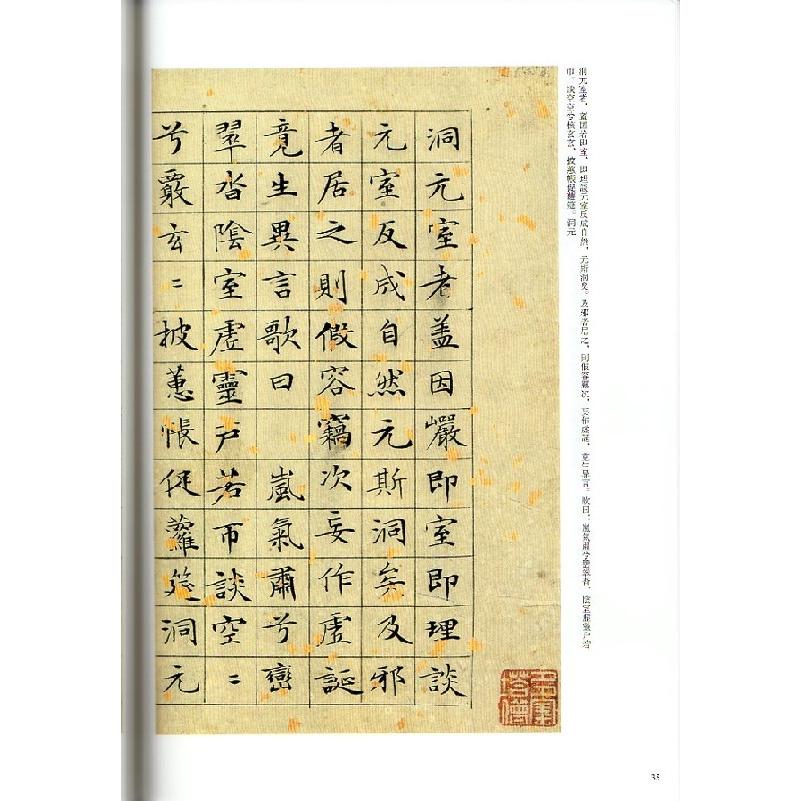 洞元室者，蓋因岩即室，即理談元室反成自然，元斯洞矣。及邪者居之，則假容竊次，妄作虛誕，竟生異言。歌曰：嵐氣肅兮巒翠沓，陰室虛靈戶芿
帀。談空空兮核玄玄，披蕙帳促蘿筵。洞元
洞元室者盖因巖即室即理談
元室反成自然元斯洞矣及邪
者居之則假容竊次妄作虛誕
竟生異言歌曰 嵐氣肅兮巒
翠沓陰室虛靈戶芿帀談空〻
兮覈玄〻披蕙帳促蘿筵洞元
35